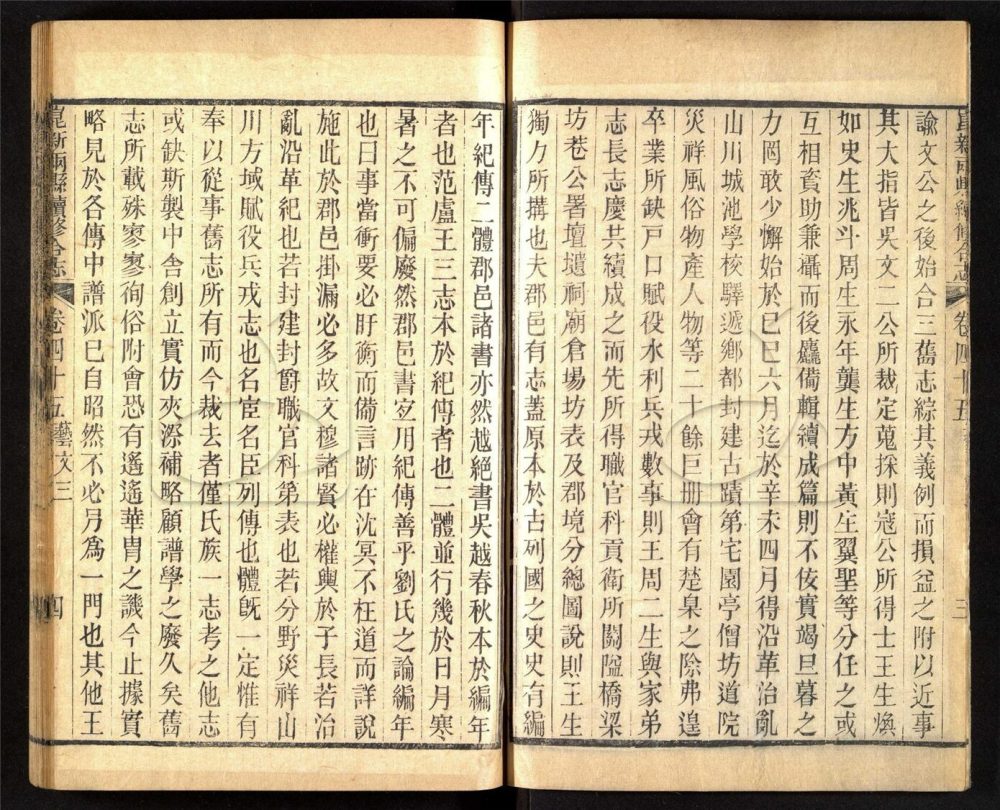 諭文公之後始合三舊志綜其義例而損益之附以近事
其大指皆吳文二公所裁定蒐採則寇公所得士王生煥
如史生兆斗周生永年龔生方中黃生翼聖等分任之或
互相資助兼襧而後麤備輯續成篇則不佞實竭旦暮之
力罔敢少懈始於己巳六月迄於辛未四月得沿革治亂
山川城池學校驛遞鄉都封建古蹟第宅園亭僧坊道院
災祥風俗物產人物等二十餘巨册會有楚臬之除弗遑
卒業所缺戸口賦役水利兵戎數事則王周二生與家弟
志長志慶共續成之而先所得職官科貢衛所關隘橋梁
坊巷公署壇壝祠廟倉場坊表及郡境分總圖說則王生
獨力所搆也夫郡邑有志蓋原本於古列國之史史有編
崑新兩縣續修合志 卷四十五 三
年紀傳二體郡邑諸書亦然越絕書吳越春秋本於編年
者也范盧王三志本於紀傳者也二體並行幾於日月寒
暑之不可偏廢然郡邑書宜用紀傳善乎劉氏之論編年
也曰事當衝要必盱衡而備言跡在沈冥不枉道而詳說
施此於郡邑掛漏必多故文穆諸賢必權輿於子長若治
亂沿革紀也若封建封爵職官科第表也若分野災祥山
川方域賦役兵戎志也名宦名臣列傳也體旣一定惟有
奉以從事舊志所有而今裁去者僅氏族一志考之他志
或缺斯製中舍創立實仿夾漈補略顧譜學之廢久矣舊
志所載殊寥寥徇俗附會恐有遙遙華冑之譏今止據實
略見於各傳中譜派已自昭然不必另爲一門也其他王
崑新兩縣續修合志 卷四十五 藝文三 四